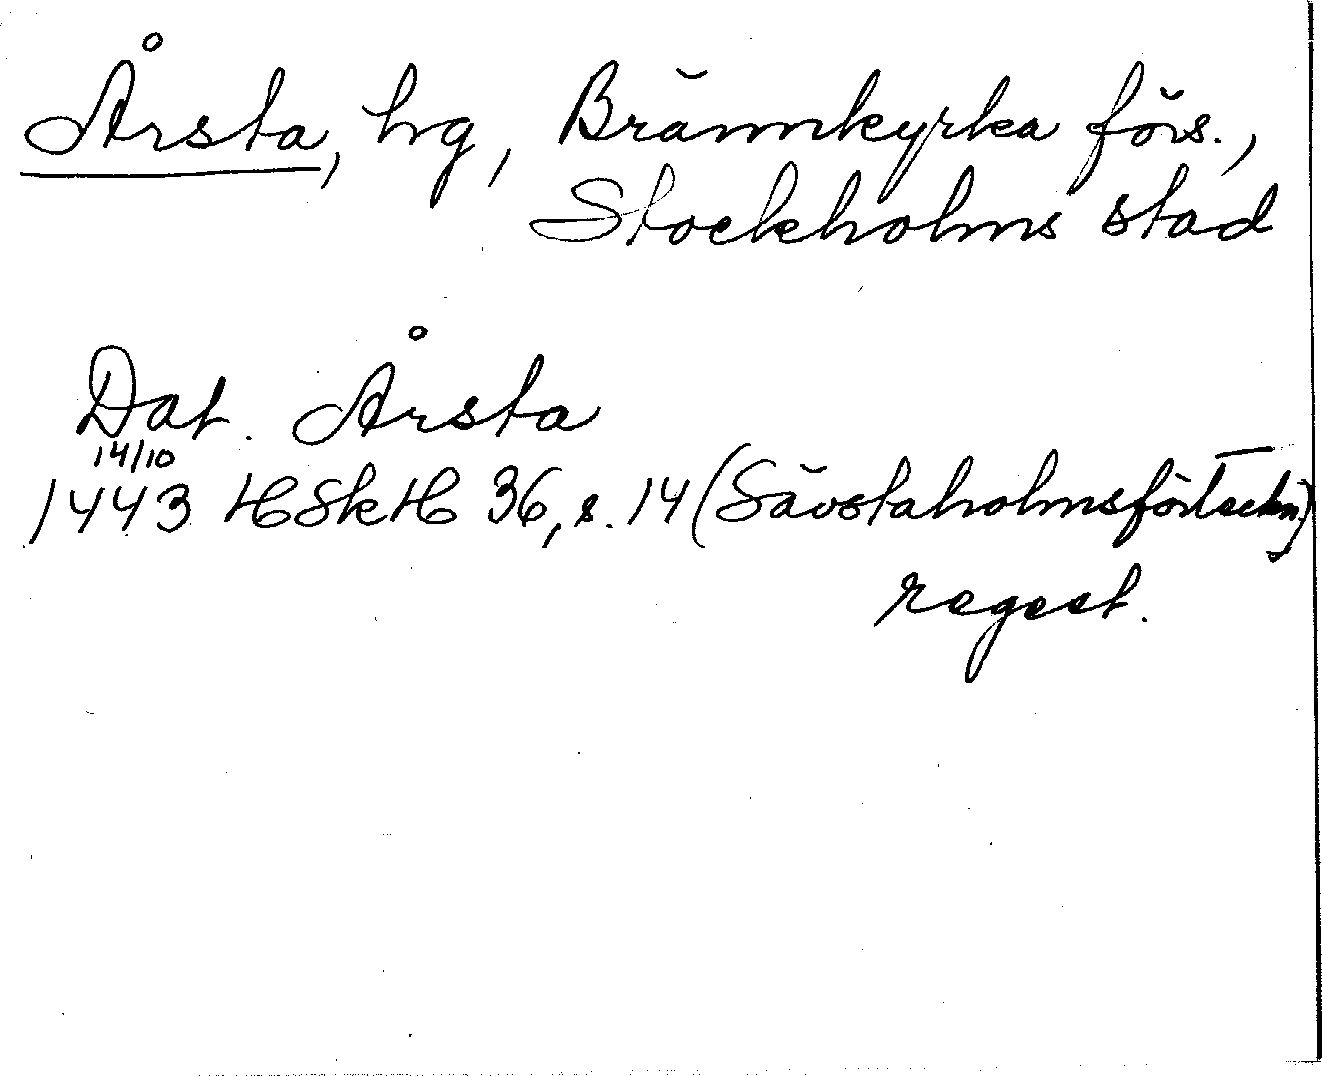 Årsta, hg, Brännkyrka förs.,
Stockholms stad
Dat. Årsta
14/10
1443 HSkH 36, s. 14 (Sävstaholmsförteckn.)
regest.